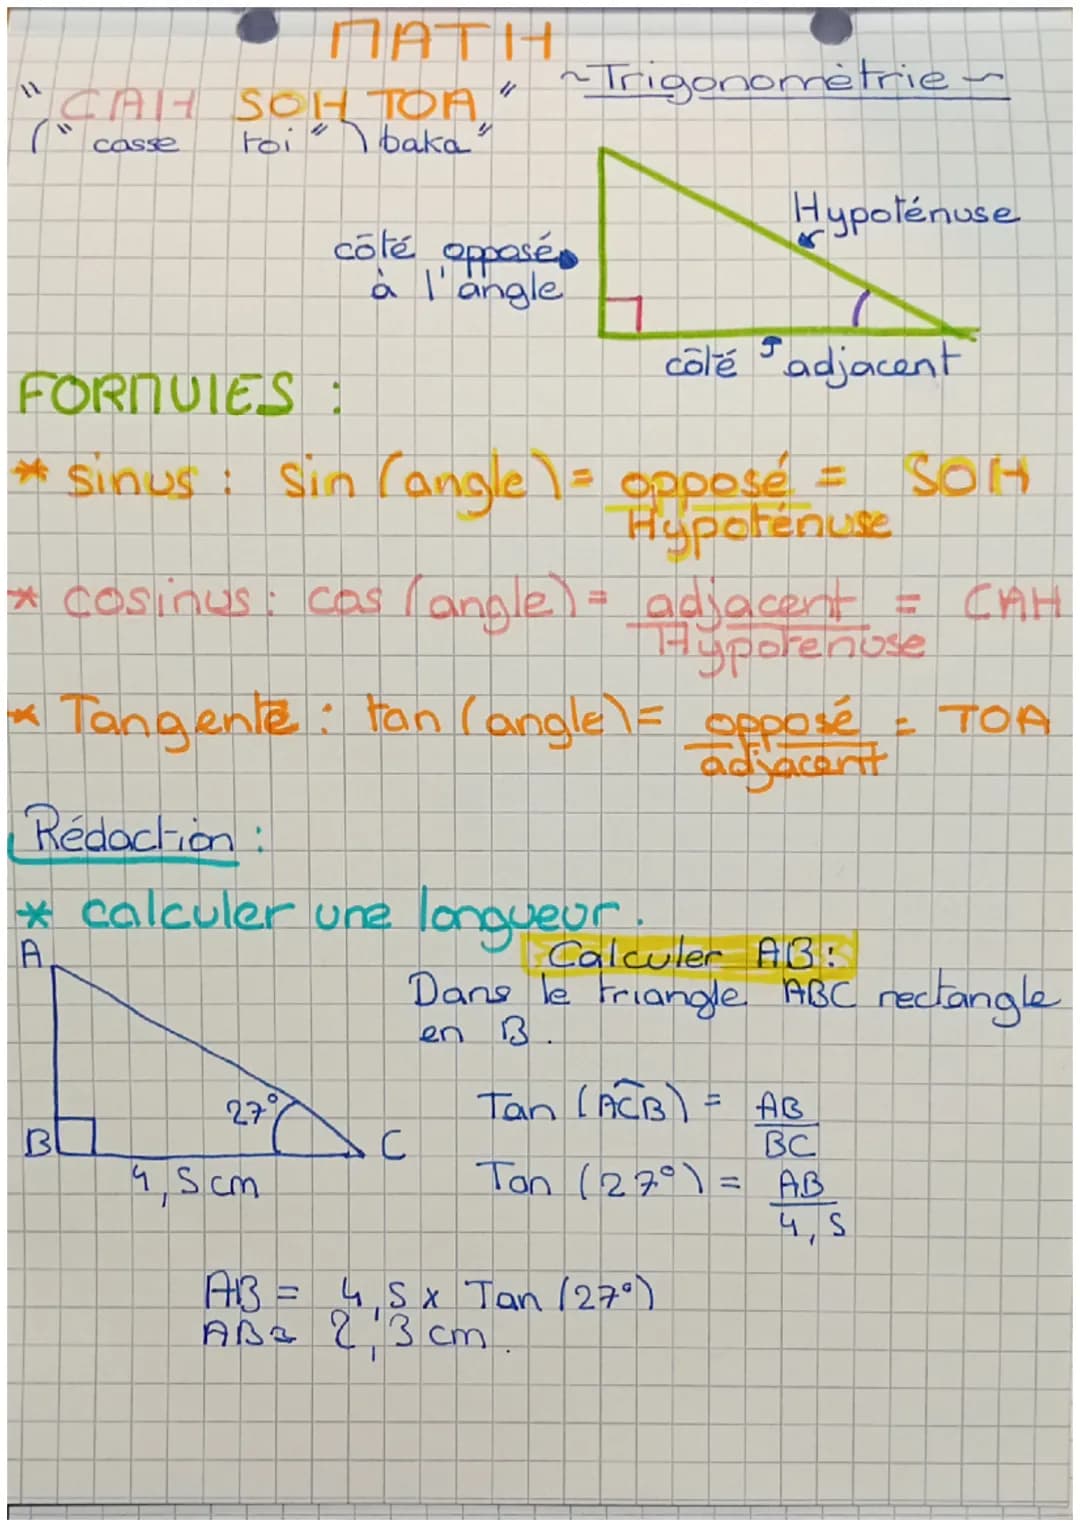 MATH
~Trigonométrie~
" CAH SOH TOA "
(" casse toi ") baka "
Hypoténuse
côté opposé
à l'angle
côté adjacent
FORMULES :
* sinus : sin (angle) = opposé = SOH
Hypoténuse
* cosinus : cos (angle) = adjacent = CAH
Hypoténuse
* Tangente : tan (angle) = opposé = TOA
adjacent
Rédaction :
* calculer une longueur.
A
Calculer AB :
Dans le triangle ABC rectangle
en B.
27°
B
C
4,5 cm
Tan (ACB) = AB
BC
Tan (27°) = AB
4,5
AB = 4,5 x Tan (27°)
AB ≈ 2,3 cm.